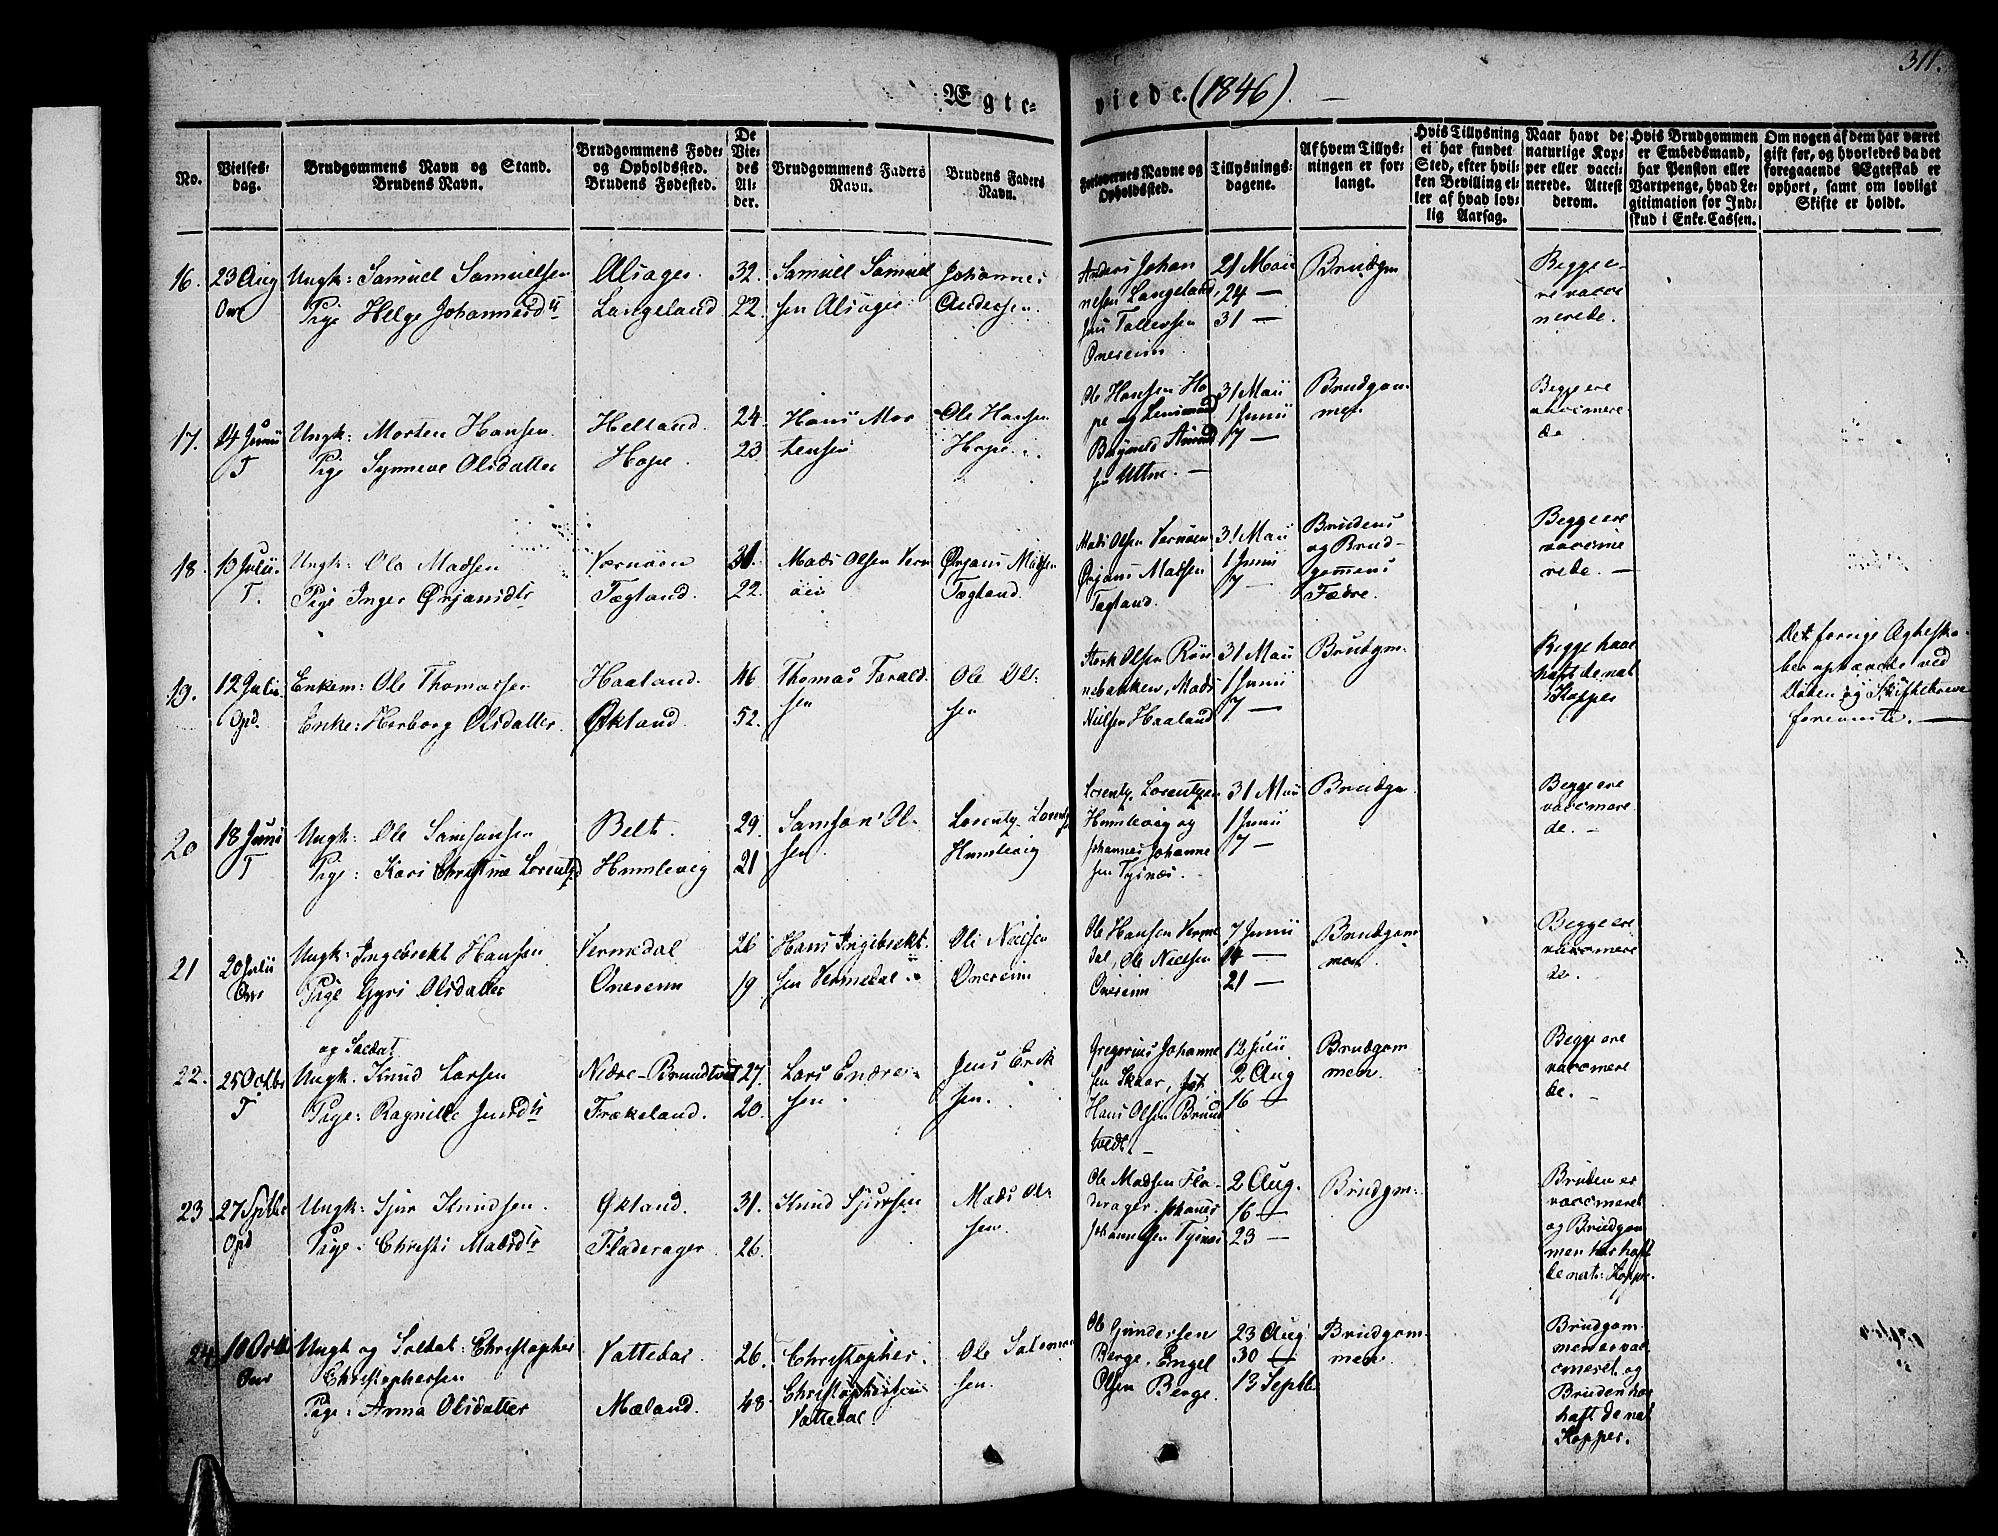 311.
Ægte-
viede. (1846).
No.
Vielses-
dag.
Brudgommens Navn og Stand.
Brudens Navn.
Brudgommens Føde-
og Opholdssted.
Brudens Fødested.
De
Vie-
des
Al-
der.
Brudgommens Faders
Navn.
Brudens Faders
Navn.
Forlovernes Navne og
Opholdssted.
Tillysnings-
dagene.
Af hvem Tillys-
ningen er for-
langt.
Hvis Tillysning
ei har fundet
Sted, efter hvil-
ken Bevilling el-
ler af hvad lov-
lig Aarsag.
Naar havt de
naturlige Kop-
per eller vacci-
nerede. Attest
derom.
Hvis Brudgommen
er Embedsmand,
har Pension eller
Vartpenge, hvad Le-
gitimation for Ind-
skud i Enke-Cassen.
Om nogen af dem har været
gift før, og hvorledes da det
foregaaende Ægteskab er
ophørt, samt om lovligt
Skifte er holdt.
16.
23 Aug
Ungk: Samuel Samuelsen
Pige Helge Johannesd
Alsager
Langeland
32.
22.
Samuel Samuel
sen Alsager
Johannes
Andersen.
Anders Johan
nesen Langeland,
Jens Tollevsen
Onereim
21 Maii
24 —
31 —
Brudgm
Begge e-
re vacci
nerede.
17.
14 Junii
T
Ungk: Morten Hansen
Pige Synneve Olsdatter
Helland
Hope.
24.
23
Hans Mor
tensen
Ole Hansen
Hope
Ole Hansen Ho
pe og Lensmand
Amund
sen Uttne.
31 Maii
1 Junii
7 —
Brudgom-
men.
Begge ere
vaccinere-
de
18.
13 Julii.
T.
Ungk: Ole Madsen
Pige Inger Ørjansdtr
Værnøen
Tægland.
31.
22.
Mads Olsen Vern
øen
Ørjans Madsen
Tægland.
Mads Olsen Vernøen
Ørjans Madsen
Tægland.
31 Maii
1 Junii
7 —
Brudens
og Brud-
gommens
Fædre.
Begge ere
vaccine
rede. —
19.
12 Julii
Opd.
Enkem: Ole Thomassen
Enke: Herborg Olsdatter.
Haaland.
Økland.
46
52.
Thomas Torald
sen
Ole Ol-
sen
Olsen Røn
nebakken, Mads
Nielsen Haaland
31 Maii
1 Junii
7 —
Brudgm.
Begge have
haft de nat
Kopper
Det forrige Ægteska-
ber ophævede ved
Døden og Skiftebreve
foreviste. —
20
18 Junii
T
Ungk: Ole Samsonsen
Pige: Kari Christine Lorentzd
Belt.
Humlevig
29.
21
Samson Ol-
sen.
Lorentz Lorentz
Humlevig
Lorentz Lorentzen
Humlevig og
Johannes Johanne
sen Tysnæs.
31 Maii
1 Junii
7 —
Brudgm.
Begge ere
vaccinere-
de. —
21
20 Julii
Ungk: Ingebrekt Hansen
Pige Gyri Olsdatter
Vermedal
Onereim
26
19
Hans Ingebrekt.
sen Vermedal
Ole Nielsen
Onereim
Ole Hansen Verme
dal, Ole Nielsen
Onereim
7 Junii
14 —
21 —
Brudgom
men.
Begge ere
vaccinere
de.
22.
25 Octbr
T
og Soldat
Ungk: Knud Larsen
Pige: Ragnilde Jensd
Nedre-Brundtvet
Frækeland.
27.
20.
Lars Endre-
sen.
Jens Erik
sen.
Gregorius Johanne
sen Skaar,
Hans Olsen Brund
tvedt —
12 Julii
2 Aug
16 —
Brudgom
men.
Begge ere
vaccinere
de. —
23.
27 Septbr
Opd
Ungk: Sjur Knudsen.
Pige: Christi Madsdtr
Økland.
Fladerager.
31.
26.
Knud Sjursen
Mads Ol-
sen.
Ole Madsen Fla-
derager. Johannes
Johannesen Tysnæs
2 Aug.
16 —
23 —
Brudgm.
Bruden er
vaccineret
og Brudgom
men har haft
de nat: Kopper.
24.
10 Octbr
Ungk og Soldat: Christopher
Christophersen
Pige: Anna Olsdatter
Vattedal
Mæland.
26.
48.
Christopher
Christophersen
Vattedal.
Ole Salemon
sen.
Ole Gundersen
Berge, Engel
Olsen Berge.
23 Aug
30 —
13 Septbr
Brudgom
men.
Brudgom
men er vac
cineret og
Bruden har
haft de nat
Kopper.